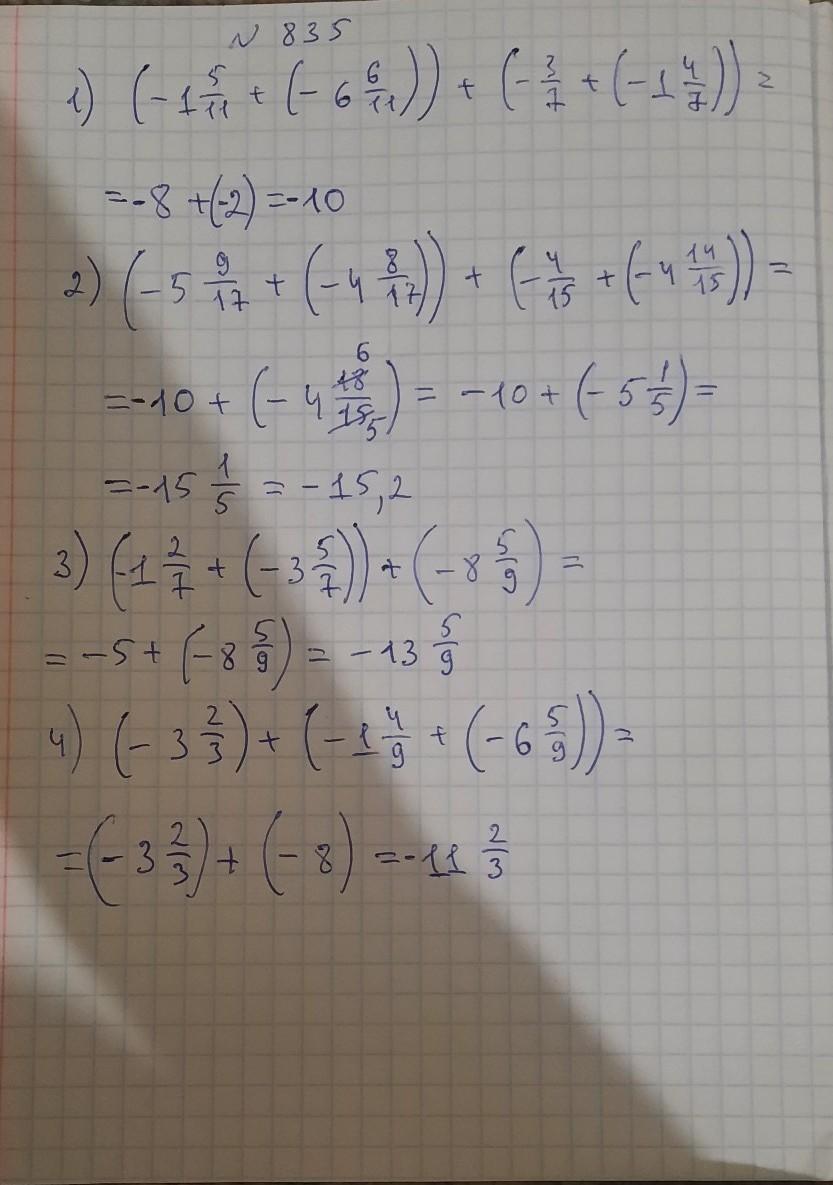 N 835
1) (-1 5/11 + (-6 6/11)) + (-3/7 + (-1 4/7)) =
= -8 + (-2) = -10
2) (-5 9/17 + (-4 8/17)) + (-4/15 + (-4 14/15)) =
= -10 + (-4 18/15 6/5) = -10 + (-5 1/5) =
= -15 1/5 = -15,2
3) (-1 2/7 + (-3 5/7)) + (-8 5/9) =
= -5 + (-8 5/9) = -13 5/9
4) (-3 2/3) + (-1 4/9 + (-6 5/9)) =
= (-3 2/3) + (-8) = -11 2/3